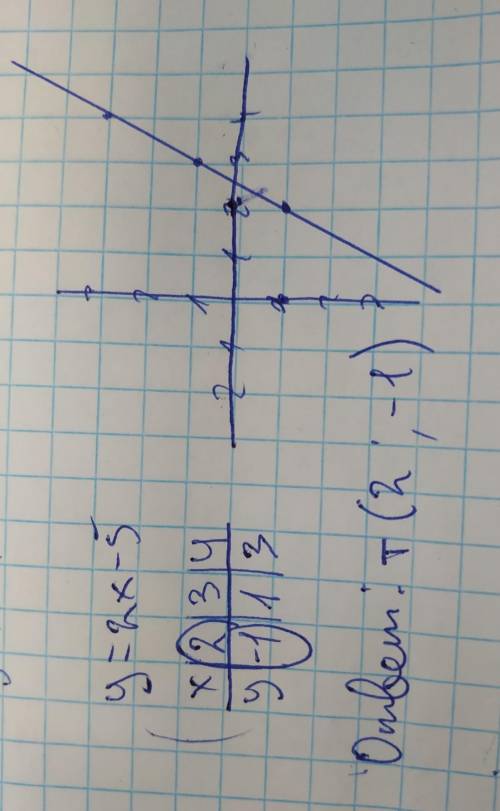 y = 2x - 5
x | 2 | 3 | 4
y | -1 | 1 | 3
Ответ: т (2; -1)
2 1 1 2 3
1